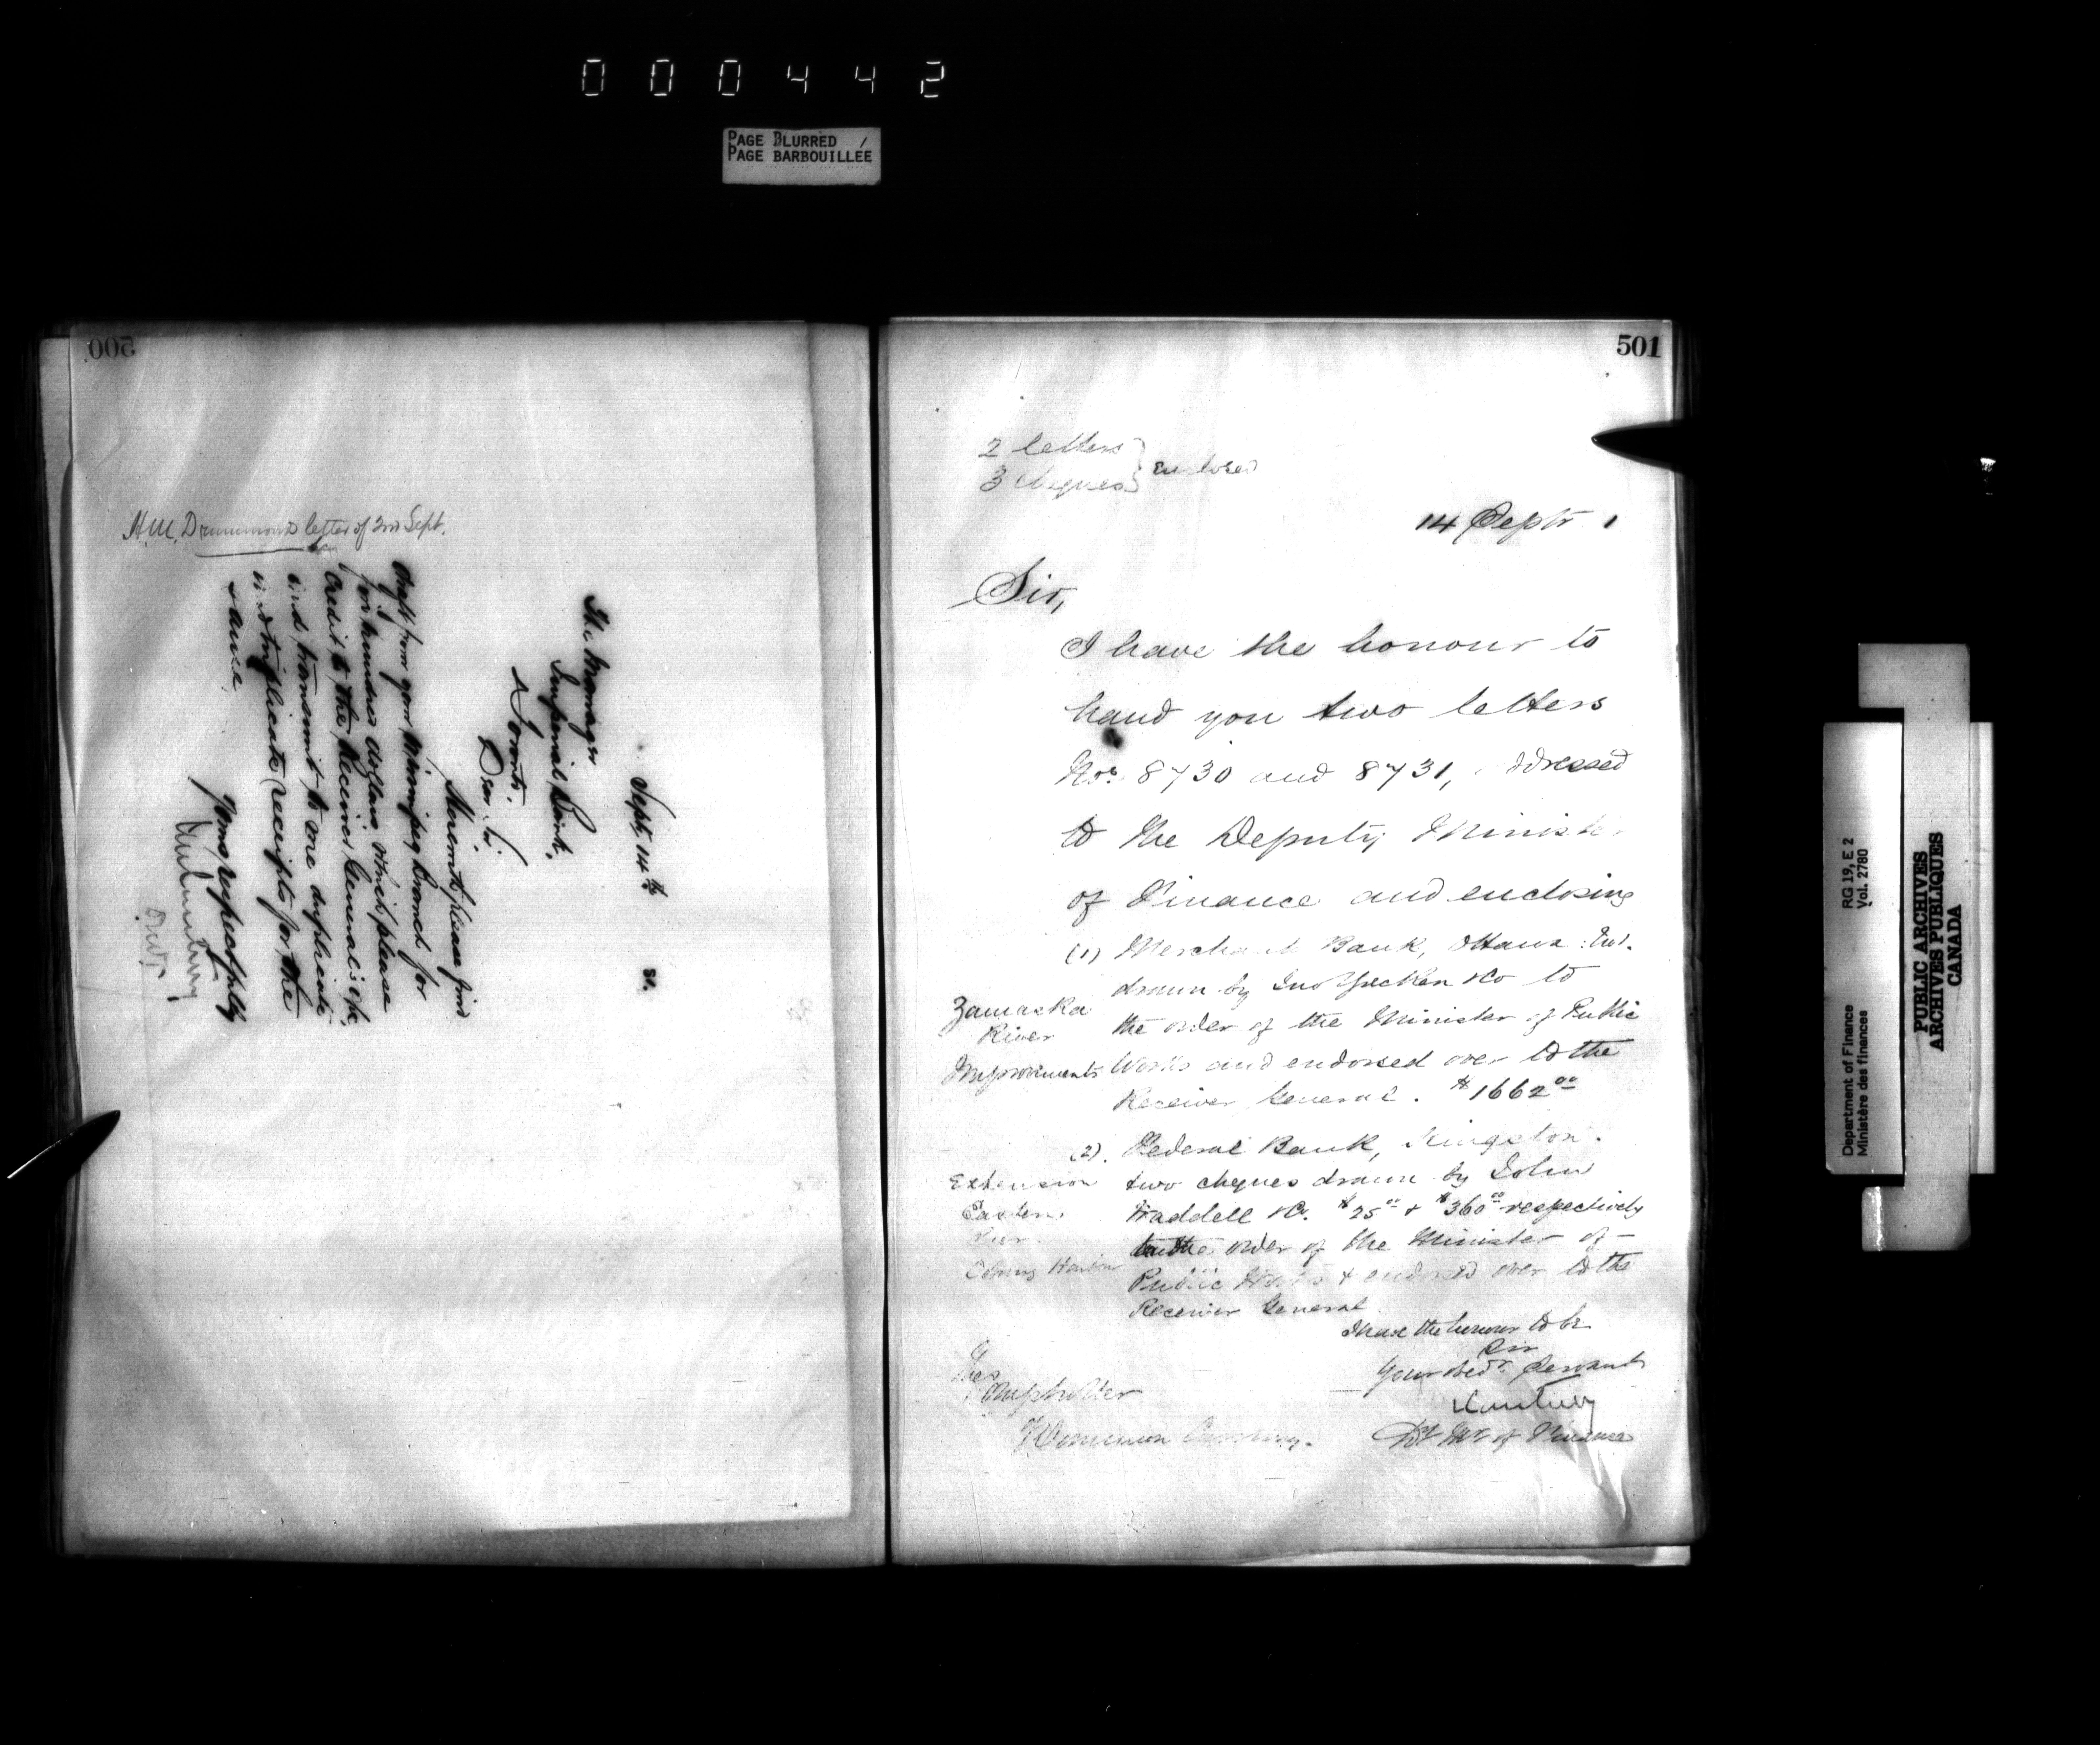 000442
PAGE BLURRED /
PAGE BARBOUILLÉE
500
H.M. Drummond's letter of 2nd Sept.
Sept. 14th 81.
The Manager
Imperial Bank,
Toronto.
Dear Sir,
Herewith please find
draft from your Winnipeg Branch for
hundred dollars which please
Credit to the Receiver General's a/c,
and transmit to me duplicate
and triplicate receipts for the
same.
Yours respectfully
501
2 letters
3 cheques } enclosed
14 Septr 1
Sir,
I have the honour to
hand you two letters
Nos. 8730 and 8731, addressed
to the Deputy Minister
of Finance and enclosing
(1) Merchants Bank, Ottawa
drawn by & Co to
the order of the Minister of Public
Works and endorsed over to the
Receiver General. $1662 00
Yamaska
River
Improvements
(2). Federal Bank, Kingston.
two cheques drawn by John
Waddell & Co. $25 00 & $360 00 respectively
to the order of the Minister of
Public Works & endorsed over to the
Receiver General
Extension
Eastern
Pier
Cobourg Harbour
I have the honour to be
Sir
Your Obedt. Servant
Courtney
Dy Mr of Finance
The
Dominion Currency.
Department of Finance
Ministère des finances
RG 19, E 2
Vol. 2780
PUBLIC ARCHIVES
ARCHIVES PUBLIQUES
CANADA